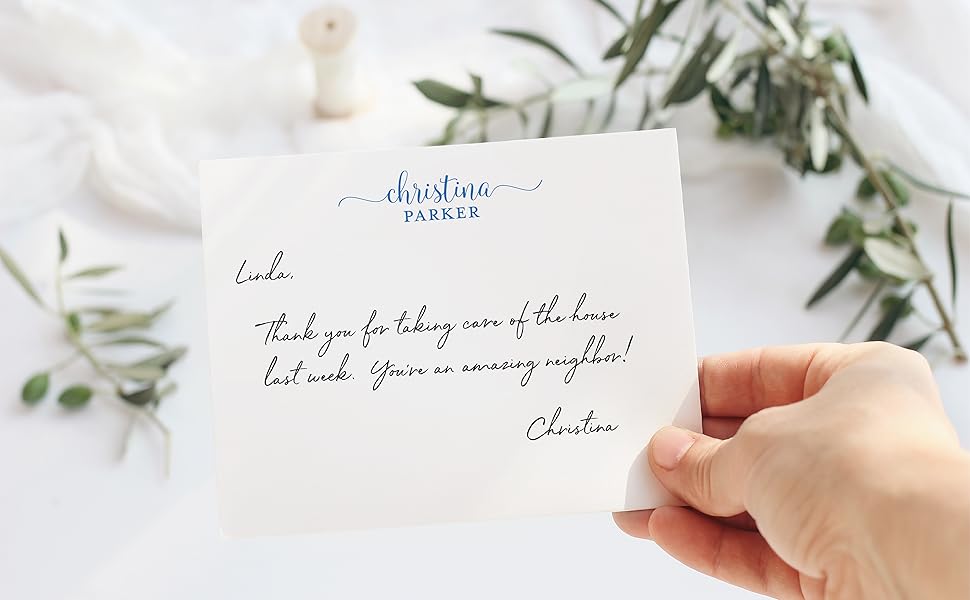 christina
PARKER
Linda,
Thank you for taking care of the house
last week. You're an amazing neighbor!
Christina